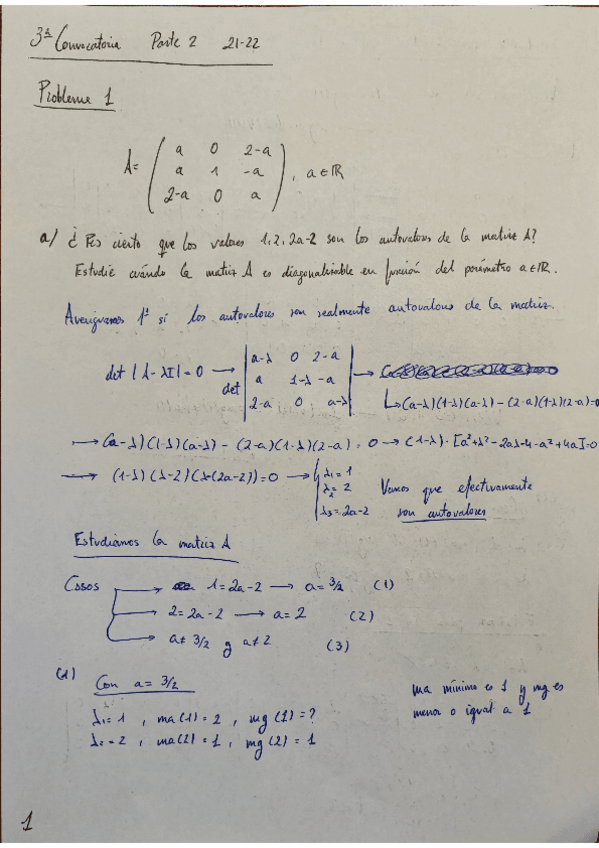 3ª Convocatoria Parte 2 21-22
Problema 1
A = ( a 0 2-a
a 1 -a
2-a 0 a ), a ∈ ℝ
a/ ¿Es cierto que los valores 1, 2, 2a-2 son los autovalores de la matriz A?
Estudie cuándo la matriz A es diagonalizable en función del parámetro a ∈ ℝ.
Averiguamos 1º si los autovalores son realmente autovalores de la matriz.
det |A - λI| = 0 → det | a-λ 0 2-a
a 1-λ -a
2-a 0 a-λ | →
↳ (a-λ)(1-λ)(a-λ) - (2-a)(1-λ)(2-a) = 0
→ (a-λ)(1-λ)(a-λ) - (2-a)(1-λ)(2-a) = 0 → (1-λ)·[a²+λ²-2aλ-4-a²+4a] = 0
→ (1-λ)(λ-2)(λ-(2a-2)) = 0 → { λ₁ = 1
λ₂ = 2
λ₃ = 2a-2
Vemos que efectivamente
son autovalores
Estudiamos la matriz A
Casos → 1 = 2a-2 → a = 3/2 (1)
→ 2 = 2a-2 → a = 2 (2)
→ a ≠ 3/2 y a ≠ 2 (3)
(1) Con a = 3/2
λ₁ = 1, ma(1) = 2, mg(1) = ?
λ₂ = 2, ma(2) = 1, mg(2) = 1
ma mínimo es 1 y mg es
menor o igual a 1
1